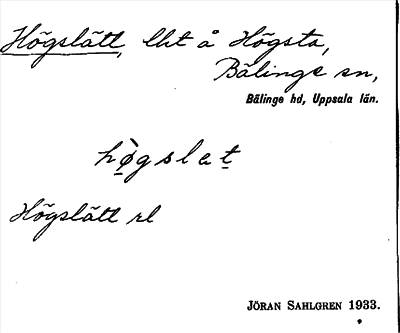 Högslätt, lht å Högsta,
Bälinge sn,
Bälinge hd, Uppsala län.
hø̀gslet
Högslätt rl
JÖRAN SAHLGREN 1933.